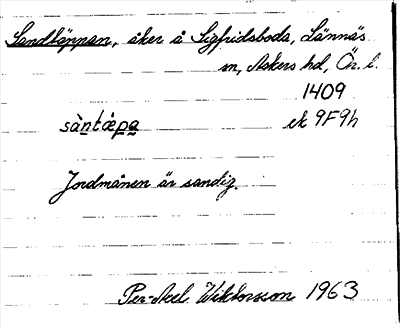 Sandtäppan, åker å Sigfridsboda, Lännäs
sn, Askers hd, Ör. l.
1409
sàntæ̀pa ek 9F9h
Jordmånen är sandig.
Per-Axel Wiktorsson 1963